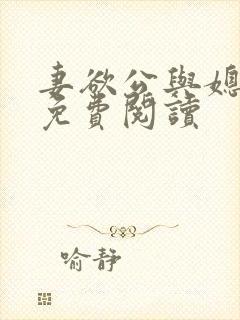 妻欲公與媳
免費閱讀
喻靜